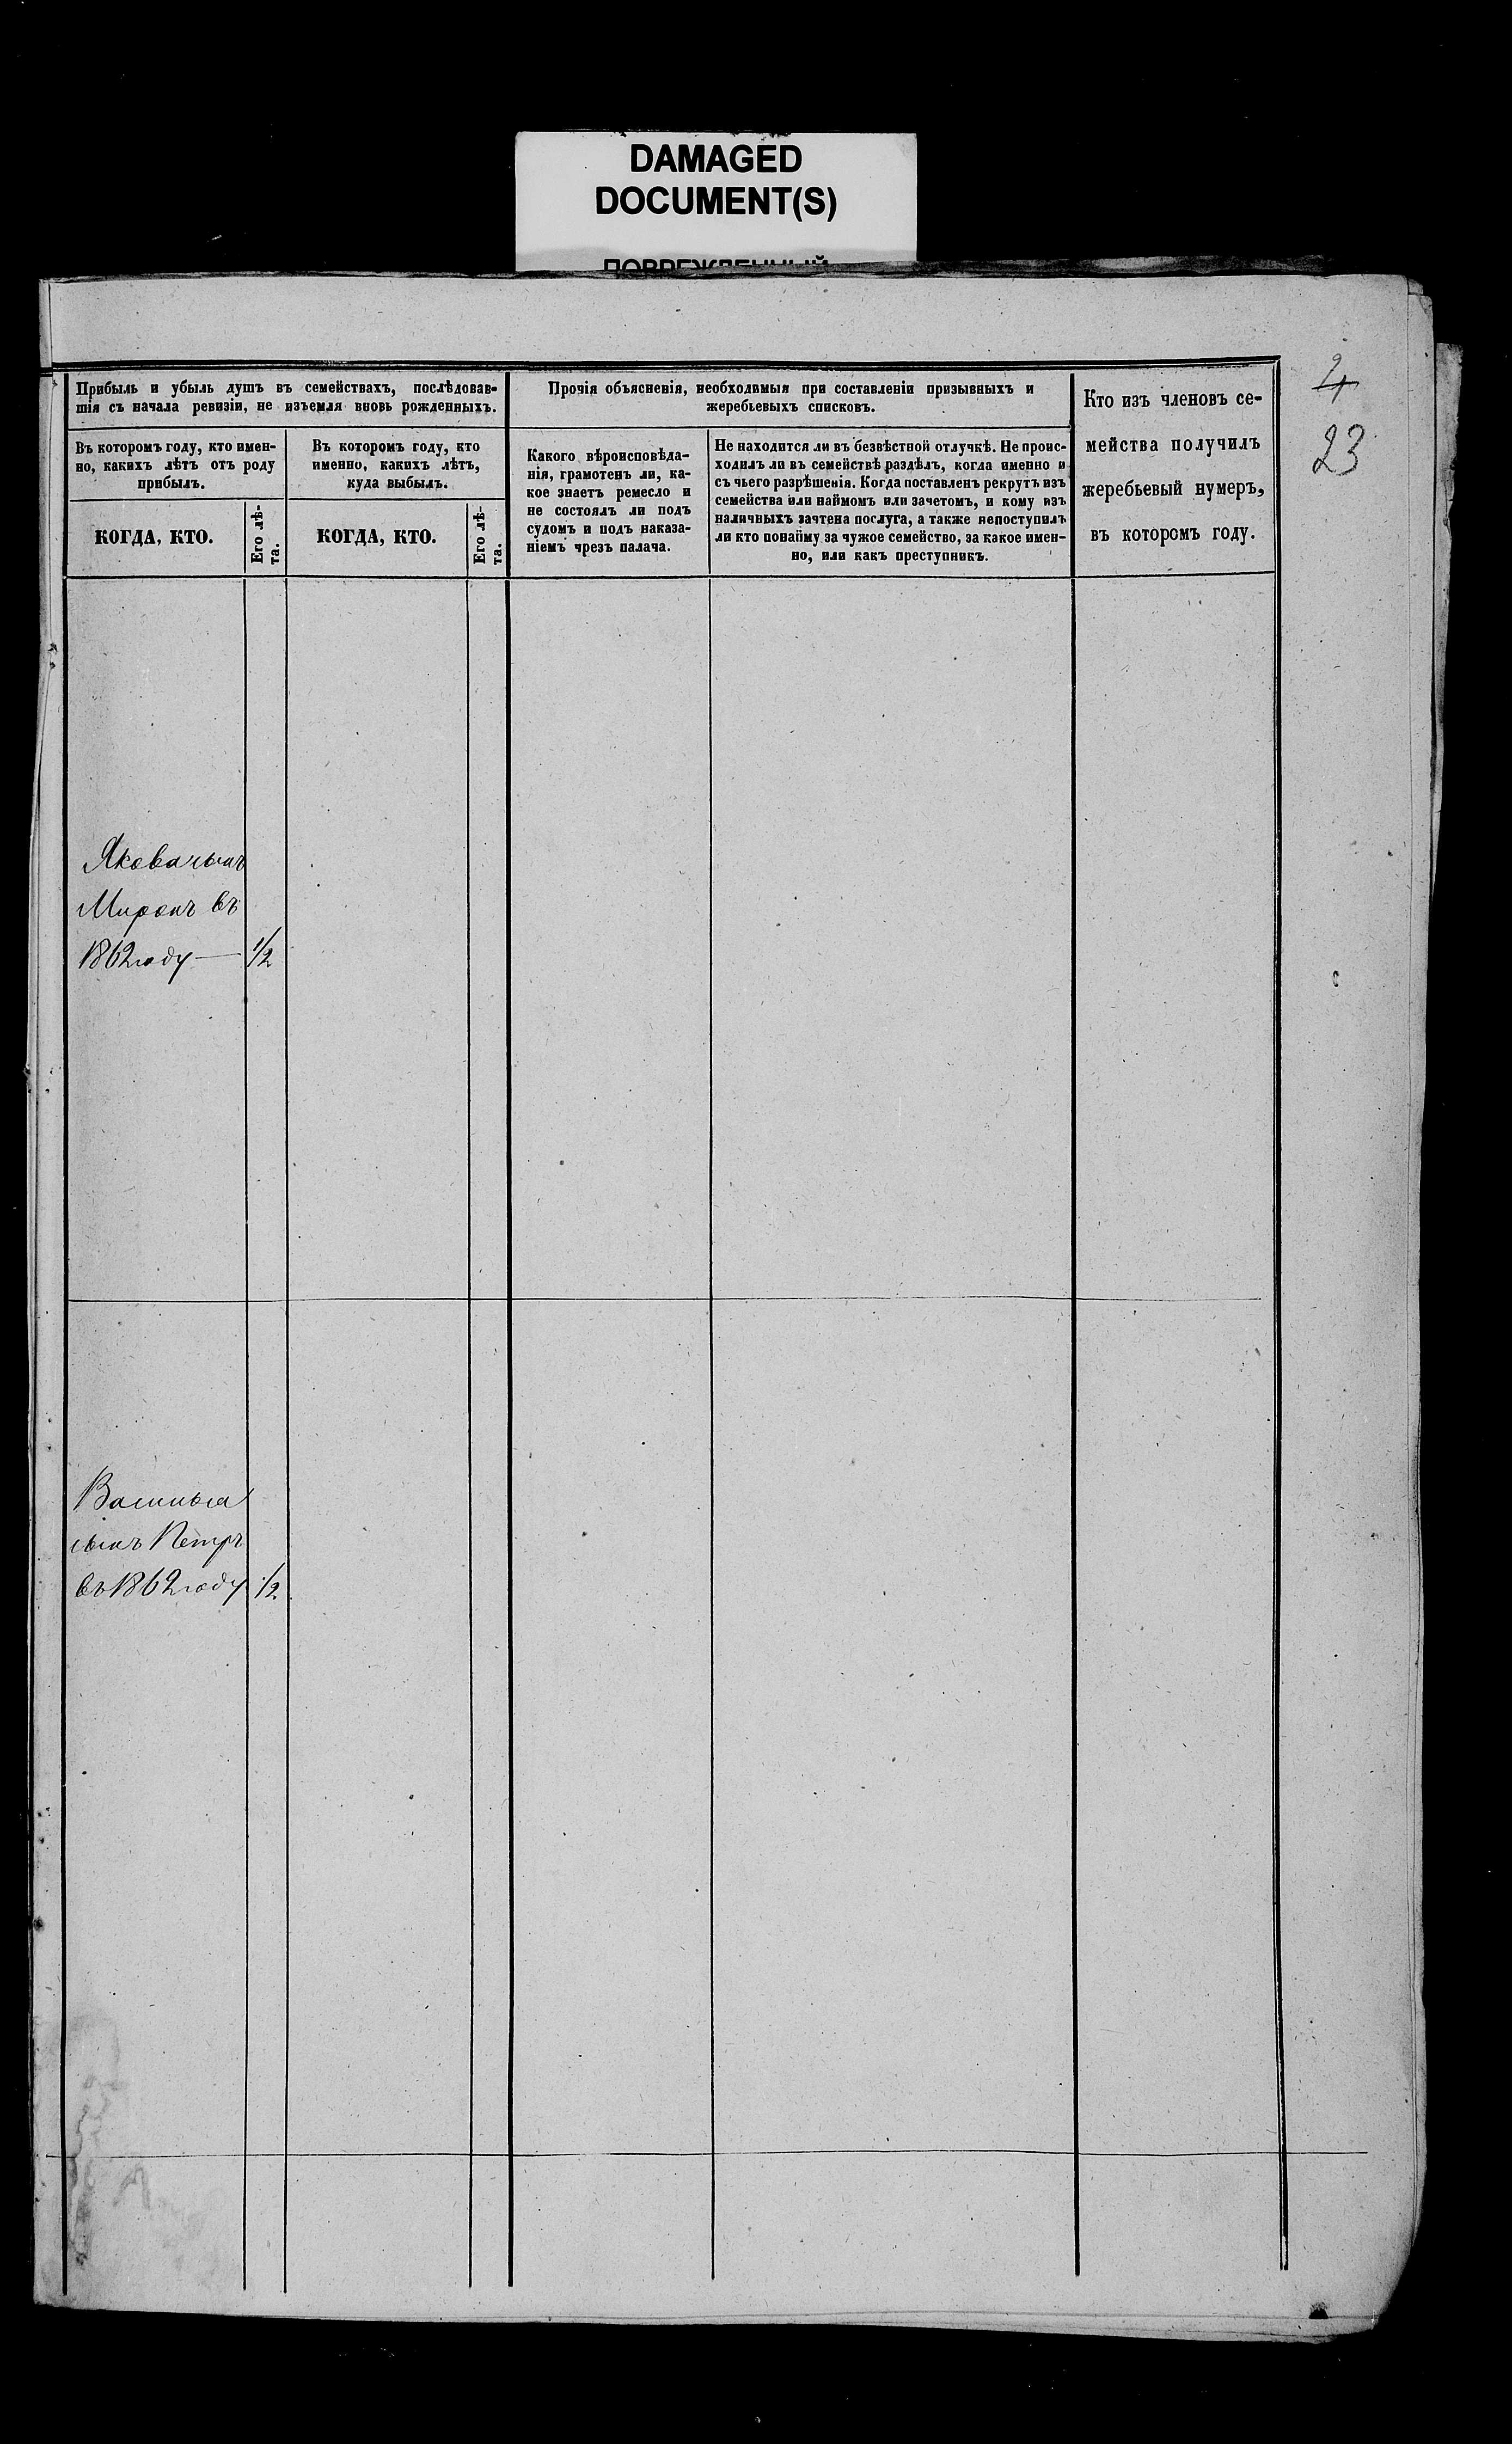 DAMAGED
DOCUMENT(S)
ПОВРЕЖДЕННЫЙ
Прибыль и убыль душъ въ семействахъ, послѣдовав-
шія съ начала ревизіи, не изъемля вновь рожденныхъ.
Въ которомъ году, кто имен-
но, какихъ лѣтъ отъ роду
прибылъ.
КОГДА, КТО.
Его лѣ-
та.
Въ которомъ году, кто
именно, какихъ лѣтъ,
куда выбылъ.
КОГДА, КТО.
Его лѣ-
та.
Прочія объясненія, необходимыя при составленіи призывныхъ и
жеребьевыхъ списковъ.
Какого вѣроисповѣда-
нія, грамотенъ ли, ка-
кое знаетъ ремесло и
не состоялъ ли подъ
судомъ и подъ наказа-
ніемъ чрезъ палача.
Не находится ли въ безвѣстной отлучкѣ. Не проис-
ходилъ ли въ семействѣ раздѣлъ, когда именно и
съ чьего разрѣшенія. Когда поставленъ рекрутъ изъ
семейства или наймомъ или зачетомъ, и кому изъ
наличныхъ зачтена послуга, а также непоступилъ
ли кто понайму за чужое семейство, за какое имен-
но, или какъ преступникъ.
Кто изъ членовъ се-
мейства получилъ
жеребьевый нумеръ,
въ которомъ году.
23
Якова сынъ
Миронъ въ
1862 году — 1/2
Василья
сынъ Петръ
въ 1862 году 1/2